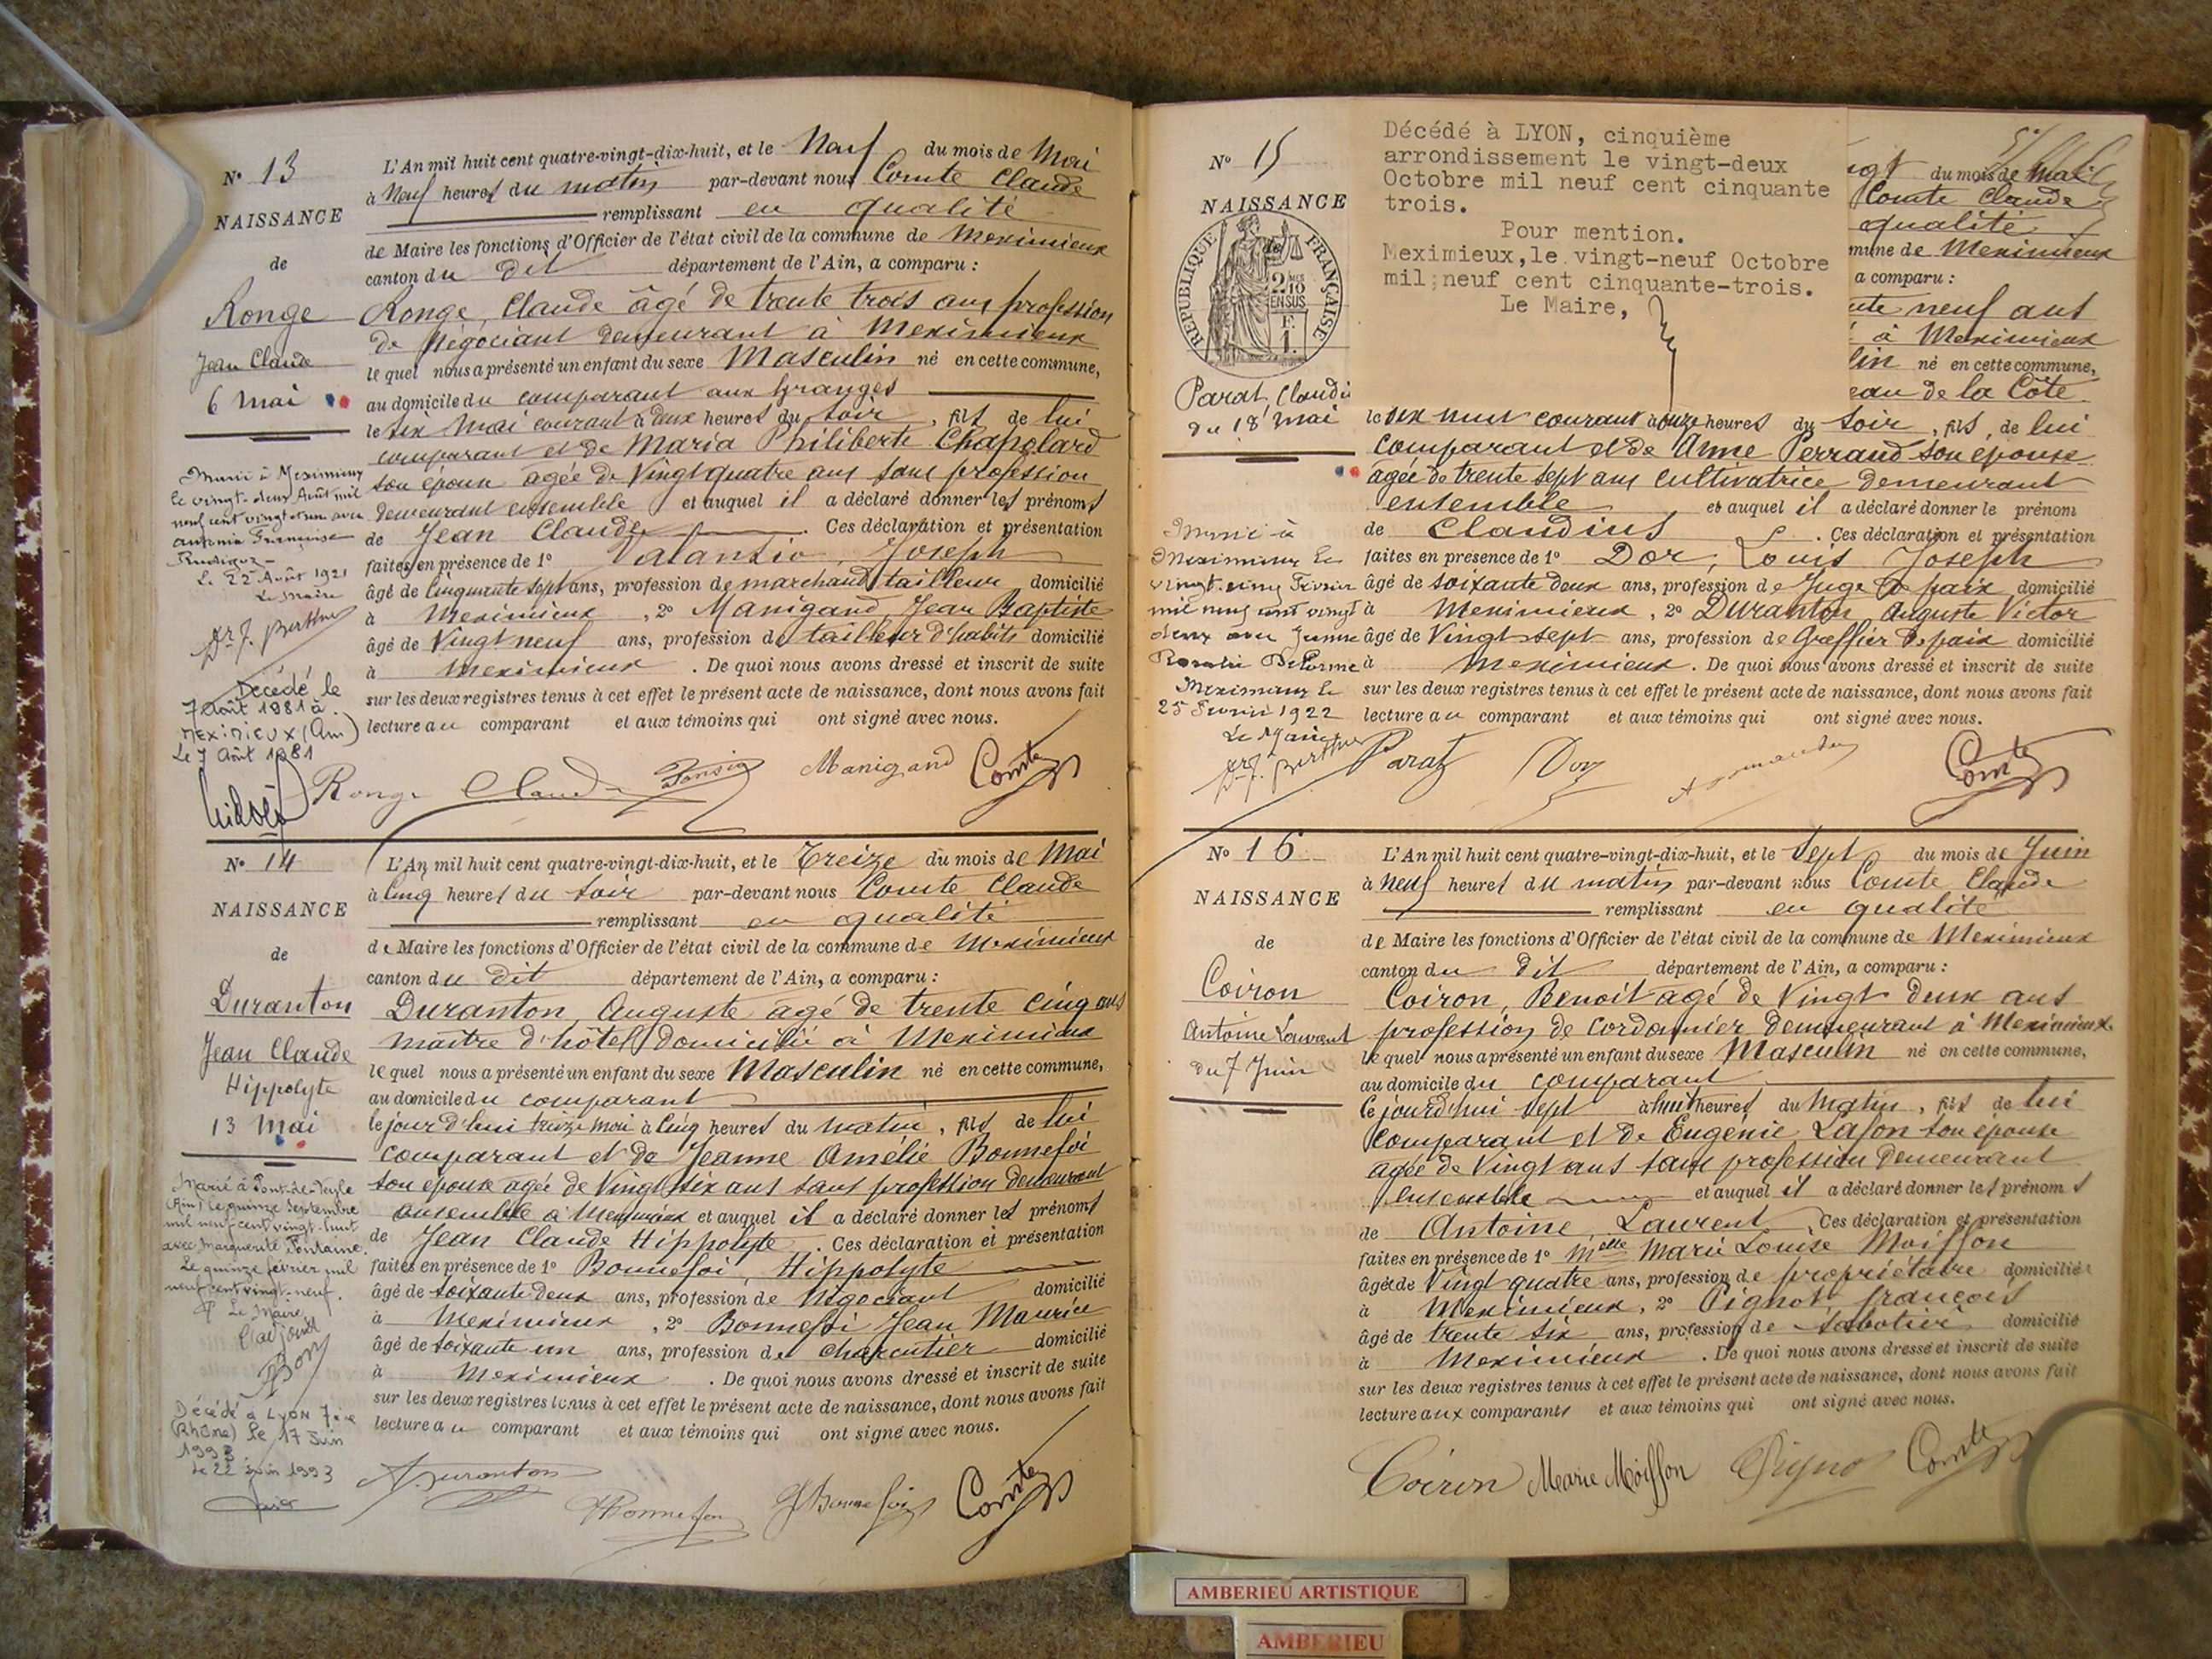 N° 13
NAISSANCE
de
Ronge
Jean Claude
6 Mai
L'An mil huit cent quatre-vingt-dix-huit, et le Neuf du mois de Mai
à Neuf heures du matin par-devant nous Comte Claude
remplissant en qualité
de Maire les fonctions d'Officier de l'état civil de la commune de Meximieux
canton du dit département de l'Ain, a comparu :
Ronge, Claude âgé de trente trois ans profession
de Négociant demeurant à Meximieux
lequel nous a présenté un enfant du sexe Masculin né en cette commune,
au domicile du comparant aux Granges
le six Mai courant à deux heures du soir, fils de lui
comparant et de Maria Philiberte Chapolard
son épouse agée de Vingt quatre ans sans profession
demeurant ensemble et auquel il a déclaré donner les prénoms
de Jean Claude. Ces déclaration et présentation
faites en présence de 1° Joseph
âgé de Cinquante sept ans, profession de marchand tailleur domicilié
à Meximieux, 2° Manigand, Jean Baptiste
âgé de Vingt neuf ans, profession de tailleur d'habits domicilié
à Meximieux. De quoi nous avons dressé et inscrit de suite
sur les deux registres tenus à cet effet le présent acte de naissance, dont nous avons fait
lecture au comparant et aux témoins qui ont signé avec nous.
Marié à Meximieux
le vingt-deux Août mil
neuf cent vingt et un avec
Antonia Françoise
Le 22 Août 1921
Le Maire
Dr J. Berthier
Décédé le
7 Août 1981 à
MEXIMIEUX (Ain)
Le 7 Août 1981
Ronge Claude Manigand Comte
N° 14
NAISSANCE
de
Duranton
Jean Claude
Hippolyte
13 Mai
L'An mil huit cent quatre-vingt-dix-huit, et le Treize du mois de Mai
à Cinq heures du soir par-devant nous Comte Claude
remplissant en qualité
de Maire les fonctions d'Officier de l'état civil de la commune de Meximieux
canton du dit département de l'Ain, a comparu :
Duranton, Auguste agé de trente cinq ans
maître d'hôtel domicilié à Meximieux
lequel nous a présenté un enfant du sexe Masculin né en cette commune,
au domicile du comparant
le jour d'hui treize Mai à Cinq heures du matin, fils de lui
comparant et de Jeanne Amélie Bonnefoi
son épouse agée de Vingt six ans sans profession demeurant
ensemble à Meximieux et auquel il a déclaré donner les prénoms
de Jean Claude Hippolyte. Ces déclaration et présentation
faites en présence de 1° Bonnefoi, Hippolyte
âgé de soixante deux ans, profession de Négociant domicilié
à Meximieux, 2° Bonnefoi Jean Maurice
âgé de soixante un ans, profession de charcutier domicilié
à Meximieux. De quoi nous avons dressé et inscrit de suite
sur les deux registres tenus à cet effet le présent acte de naissance, dont nous avons fait
lecture au comparant et aux témoins qui ont signé avec nous.
Marié à Pont-de-Veyle
(Ain) le quinze Septembre
mil neuf cent vingt-huit
avec Marguerite Fontaine.
Le quinze février mil
neuf cent vingt-neuf.
Le Maire,
l'adjoint
Décédé à LYON 7ème
(Rhône) le 17 Juin
1993
Le 22 Juin 1993
A. Duranton Bonnefoi Bonnefoi Comte
N° 15
NAISSANCE
RÉPUBLIQUE FRANÇAISE
2/10
EN SUS
F.
1.
Parat, Claudi
du 18 Mai
Décédé à LYON, cinquième
arrondissement le vingt-deux
Octobre mil neuf cent cinquante
trois.
Pour mention.
Meximieux, le vingt-neuf Octobre
mil neuf cent cinquante-trois.
Le Maire,
du mois de Mai
Comte Claude
qualité
mune de Meximieux
a comparu :
nte neuf ans
à Meximieux
lin né en cette commune,
eau de la Côte
le dix huit courant à onze heures du soir, fils de lui
comparant et de Anne Perraud son épouse
agée de trente sept ans cultivatrice demeurant
ensemble et auquel il a déclaré donner le prénom
de Claudius. Ces déclaration et présentation
faites en présence de 1° Dor, Louis Joseph
âgé de soixante deux ans, profession de Juge de paix domicilié
à Meximieux, 2° Duranton Auguste Victor
âgé de Vingt sept ans, profession de Greffier de paix domicilié
à Meximieux. De quoi nous avons dressé et inscrit de suite
sur les deux registres tenus à cet effet le présent acte de naissance, dont nous avons fait
lecture au comparant et aux témoins qui ont signé avec nous.
Marié à
Meximieux le
vingt-cinq Février
mil neuf cent vingt
deux avec Jeanne
Rosalie Delorme
Meximieux le
25 Février 1922
Le Maire
Dr J. Berthier
Parat Dor Comte
N° 16
NAISSANCE
de
Coiron
Antoine Laurent
du 7 Juin
L'An mil huit cent quatre-vingt-dix-huit, et le Sept du mois de Juin
à Neuf heures du matin par-devant nous Comte Claude
remplissant en qualité
de Maire les fonctions d'Officier de l'état civil de la commune de Meximieux
canton du dit département de l'Ain, a comparu :
Coiron, Benoit agé de Vingt deux ans
profession de cordonnier demeurant à Meximieux
lequel nous a présenté un enfant du sexe Masculin né en cette commune,
au domicile du comparant
le jourd'hui sept à huit heures du Matin, fils de lui
comparant et de Eugénie Lafon son épouse
agée de Vingt ans sans profession demeurant
ensemble et auquel il a déclaré donner les prénoms
de Antoine Laurent. Ces déclaration et présentation
faites en présence de 1° Melle Marie Louise Moisson
âgée de Vingt quatre ans, profession de propriétaire domiciliée
à Meximieux, 2° Pignot françois
âgé de trente six ans, profession de Sabotier domicilié
à Meximieux. De quoi nous avons dressé et inscrit de suite
sur les deux registres tenus à cet effet le présent acte de naissance, dont nous avons fait
lecture aux comparants et aux témoins qui ont signé avec nous.
Coiron Marie Moisson Comte
AMBERIEU ARTISTIQUE
AMBERIEU